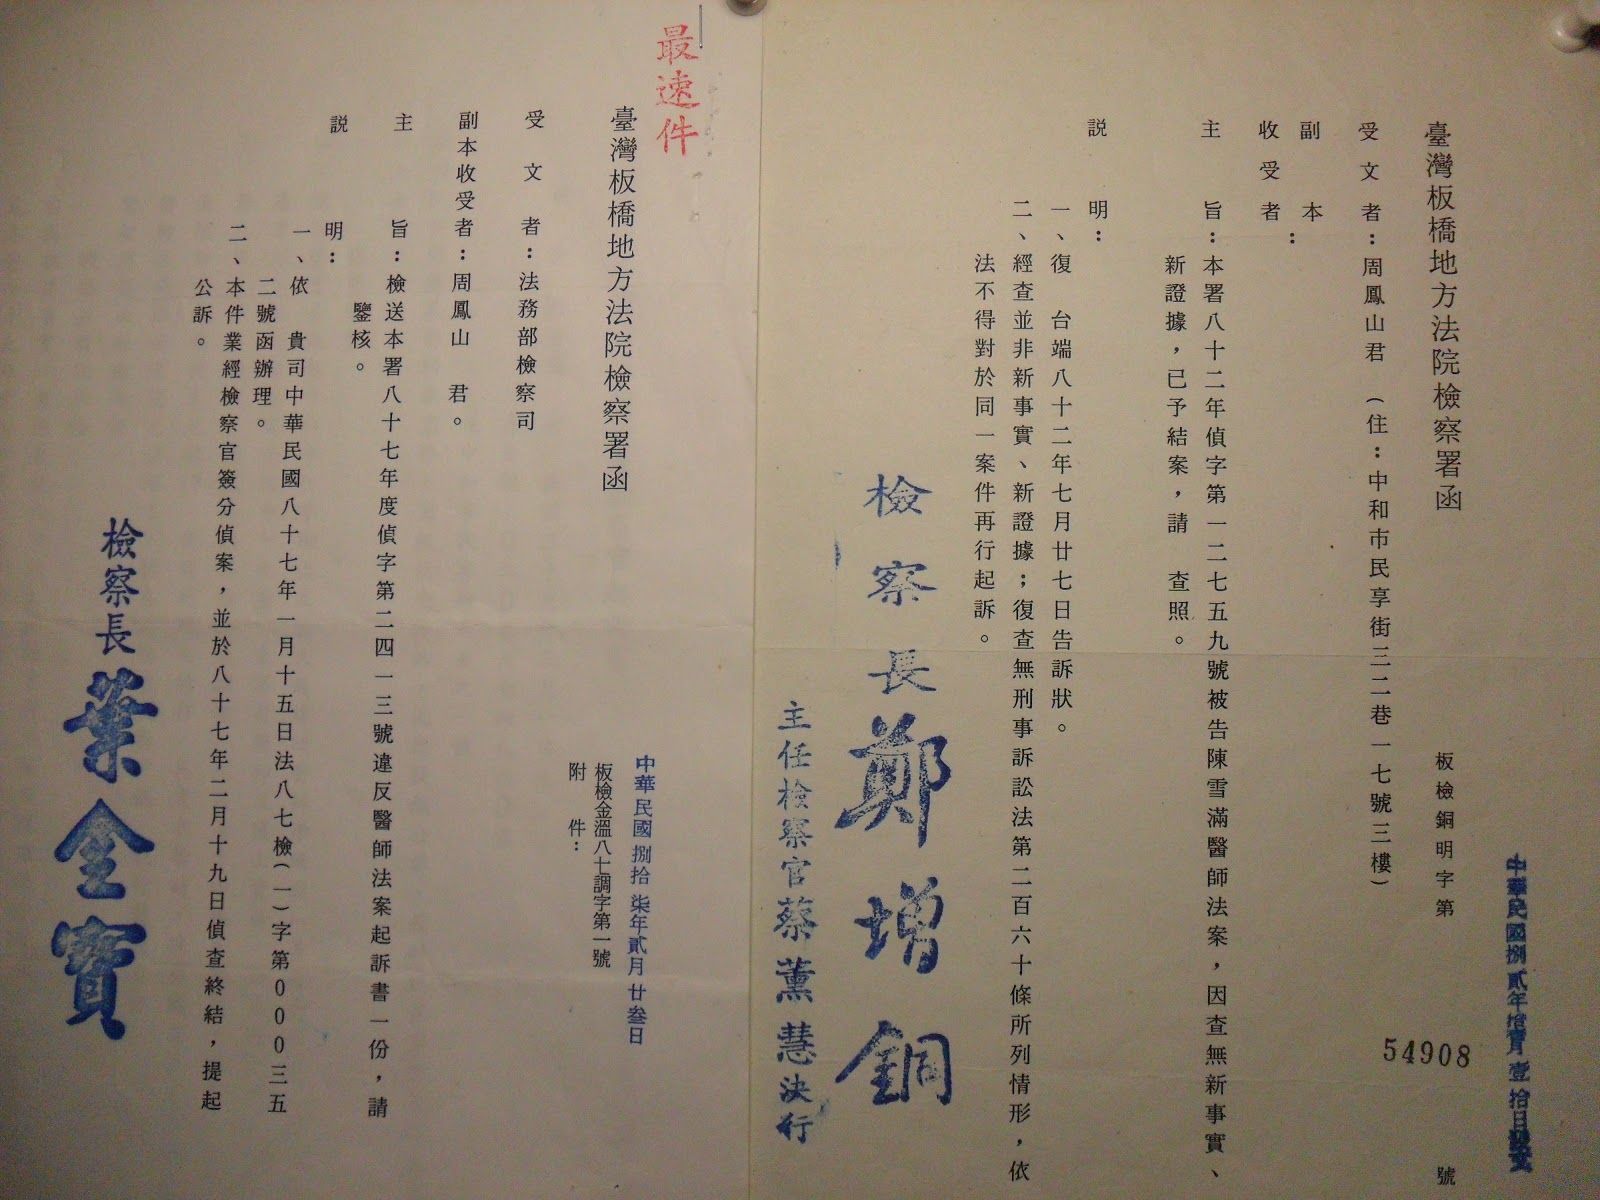 臺灣板橋地方法院檢察署函
板檢銅明字第
54908
號
受文者：周鳳山君 （住：中和市民享街三二巷一七號三樓）
副本
收受者：
主旨：本署八十二年偵字第一二七五九號被告陳雪滿醫師法案，因查無新事實、
新證據，已予結案，請 查照。
説明：
一、復 台端八十二年七月廿七日告訴狀。
二、經查並非新事實、新證據；復查無刑事訴訟法第二百六十條所列情形，依
法不得對於同一案件再行起訴。
檢察長鄭增銅
主任檢察官蔡薰慧決行
最速件
臺灣板橋地方法院檢察署函
中華民國捌拾柒年貳月廿叁日
板檢金溫八七調字第一號
附件：
受文者：法務部檢察司
副本收受者：周鳳山 君。
主旨：檢送本署八十七年度偵字第二四一三號違反醫師法案起訴書一份，請
鑒核。
説明：
一、依 貴司中華民國八十七年一月十五日法八七檢(一)字第000三五
二號函辦理。
二、本件業經檢察官簽分偵案，並於八十七年二月十九日偵查終結，提起
公訴。
檢察長葉金寶